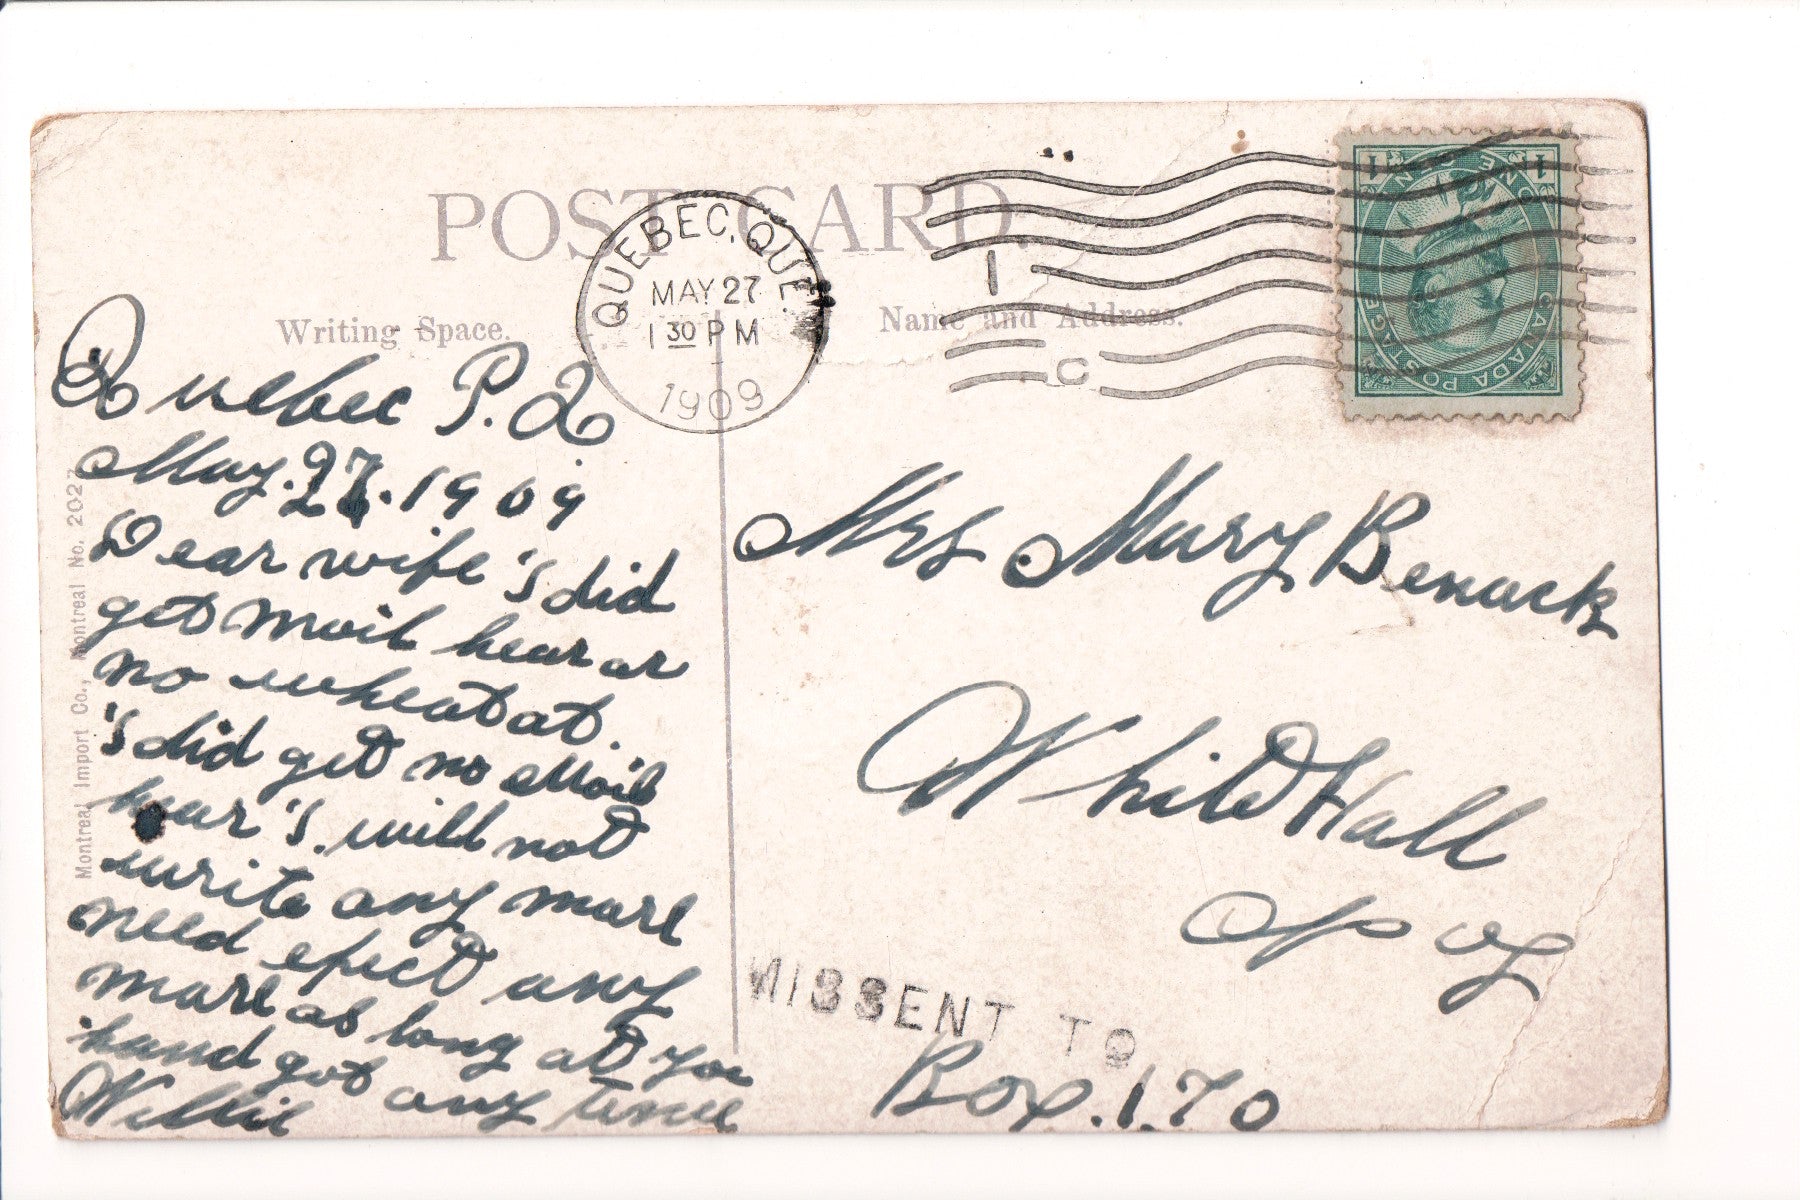 POST CARD.
QUEBEC, QUE.
MAY 27
1 30 PM
1909
1
C
CANADA POSTAGE
ONE CENT
1 1
Writing Space.
Name and Address.
Quebec P. Q
May. 27. 1909
Dear wife 's did
get mail hear or
no wheat at.
's did get no Mail
hear 's. will not
write any more
need epect any
more as long at you
hand got any time
Willie
Mrs Mary Benack
White Hall
MISSENT TO
Box. 170
Montreal Import Co., Montreal No. 2027